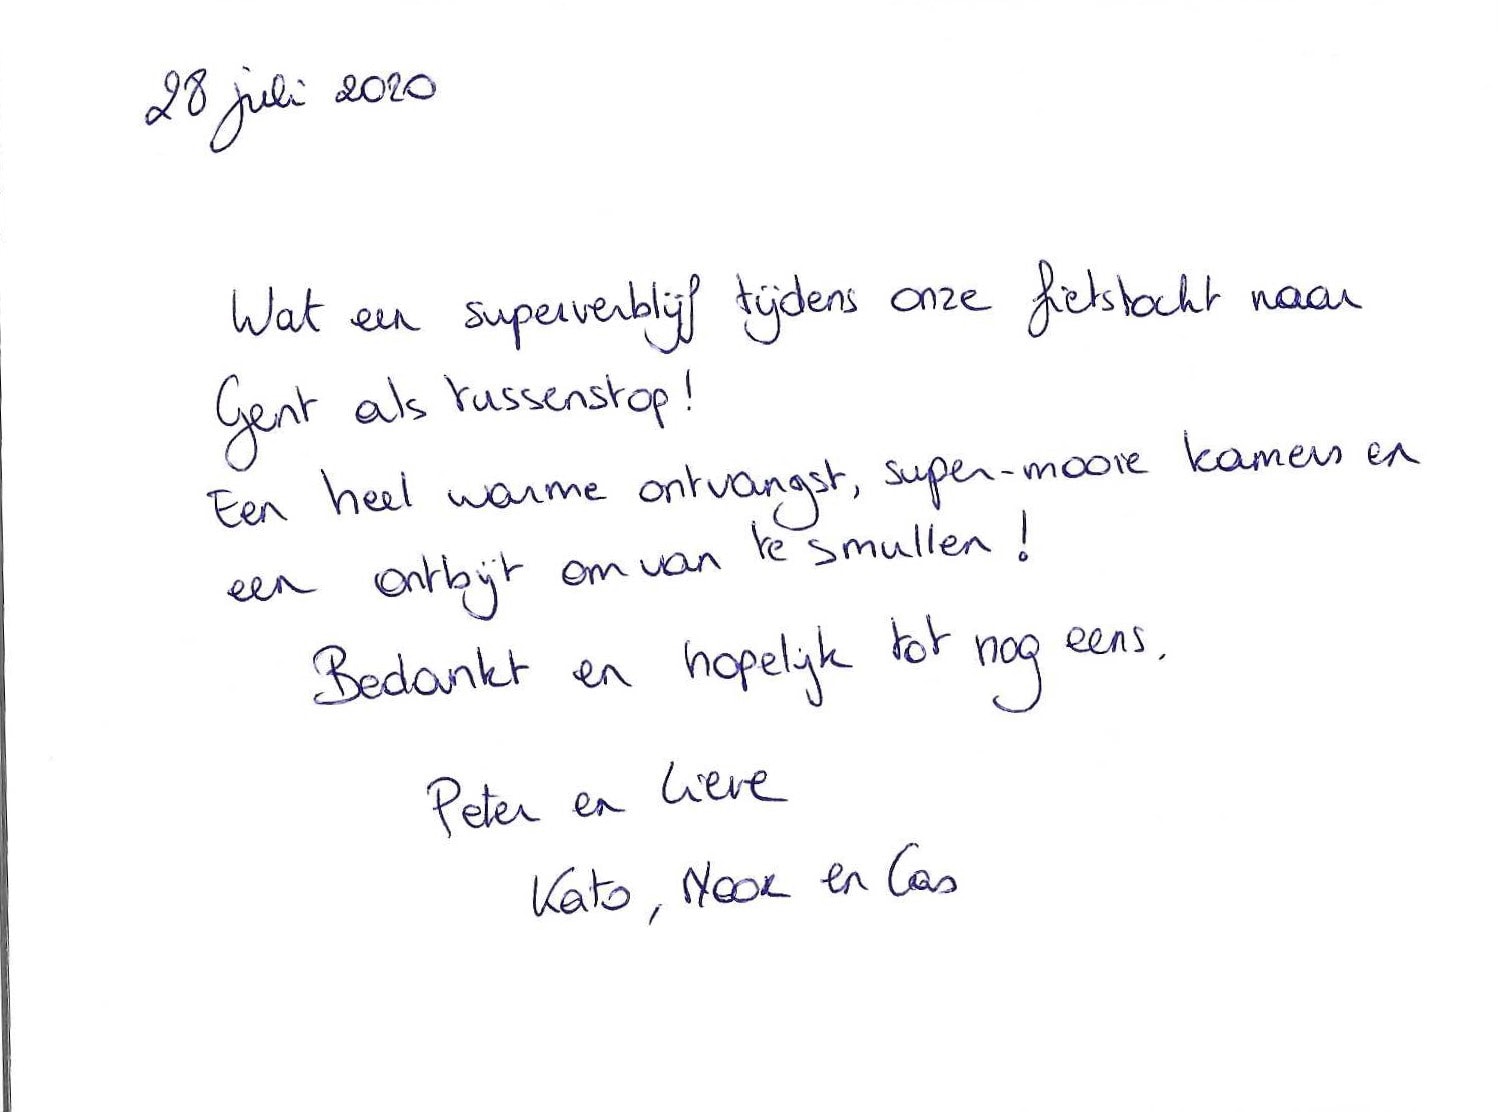 28 juli 2020
Wat een superverblijf tijdens onze fietstocht naar
Gent als tussenstop!
Een heel warme ontvangst, super-mooie kamers en
een ontbijt om van te smullen!
Bedankt en hopelijk tot nog eens.
Peter en Lieve
Kato, Noor en Cas